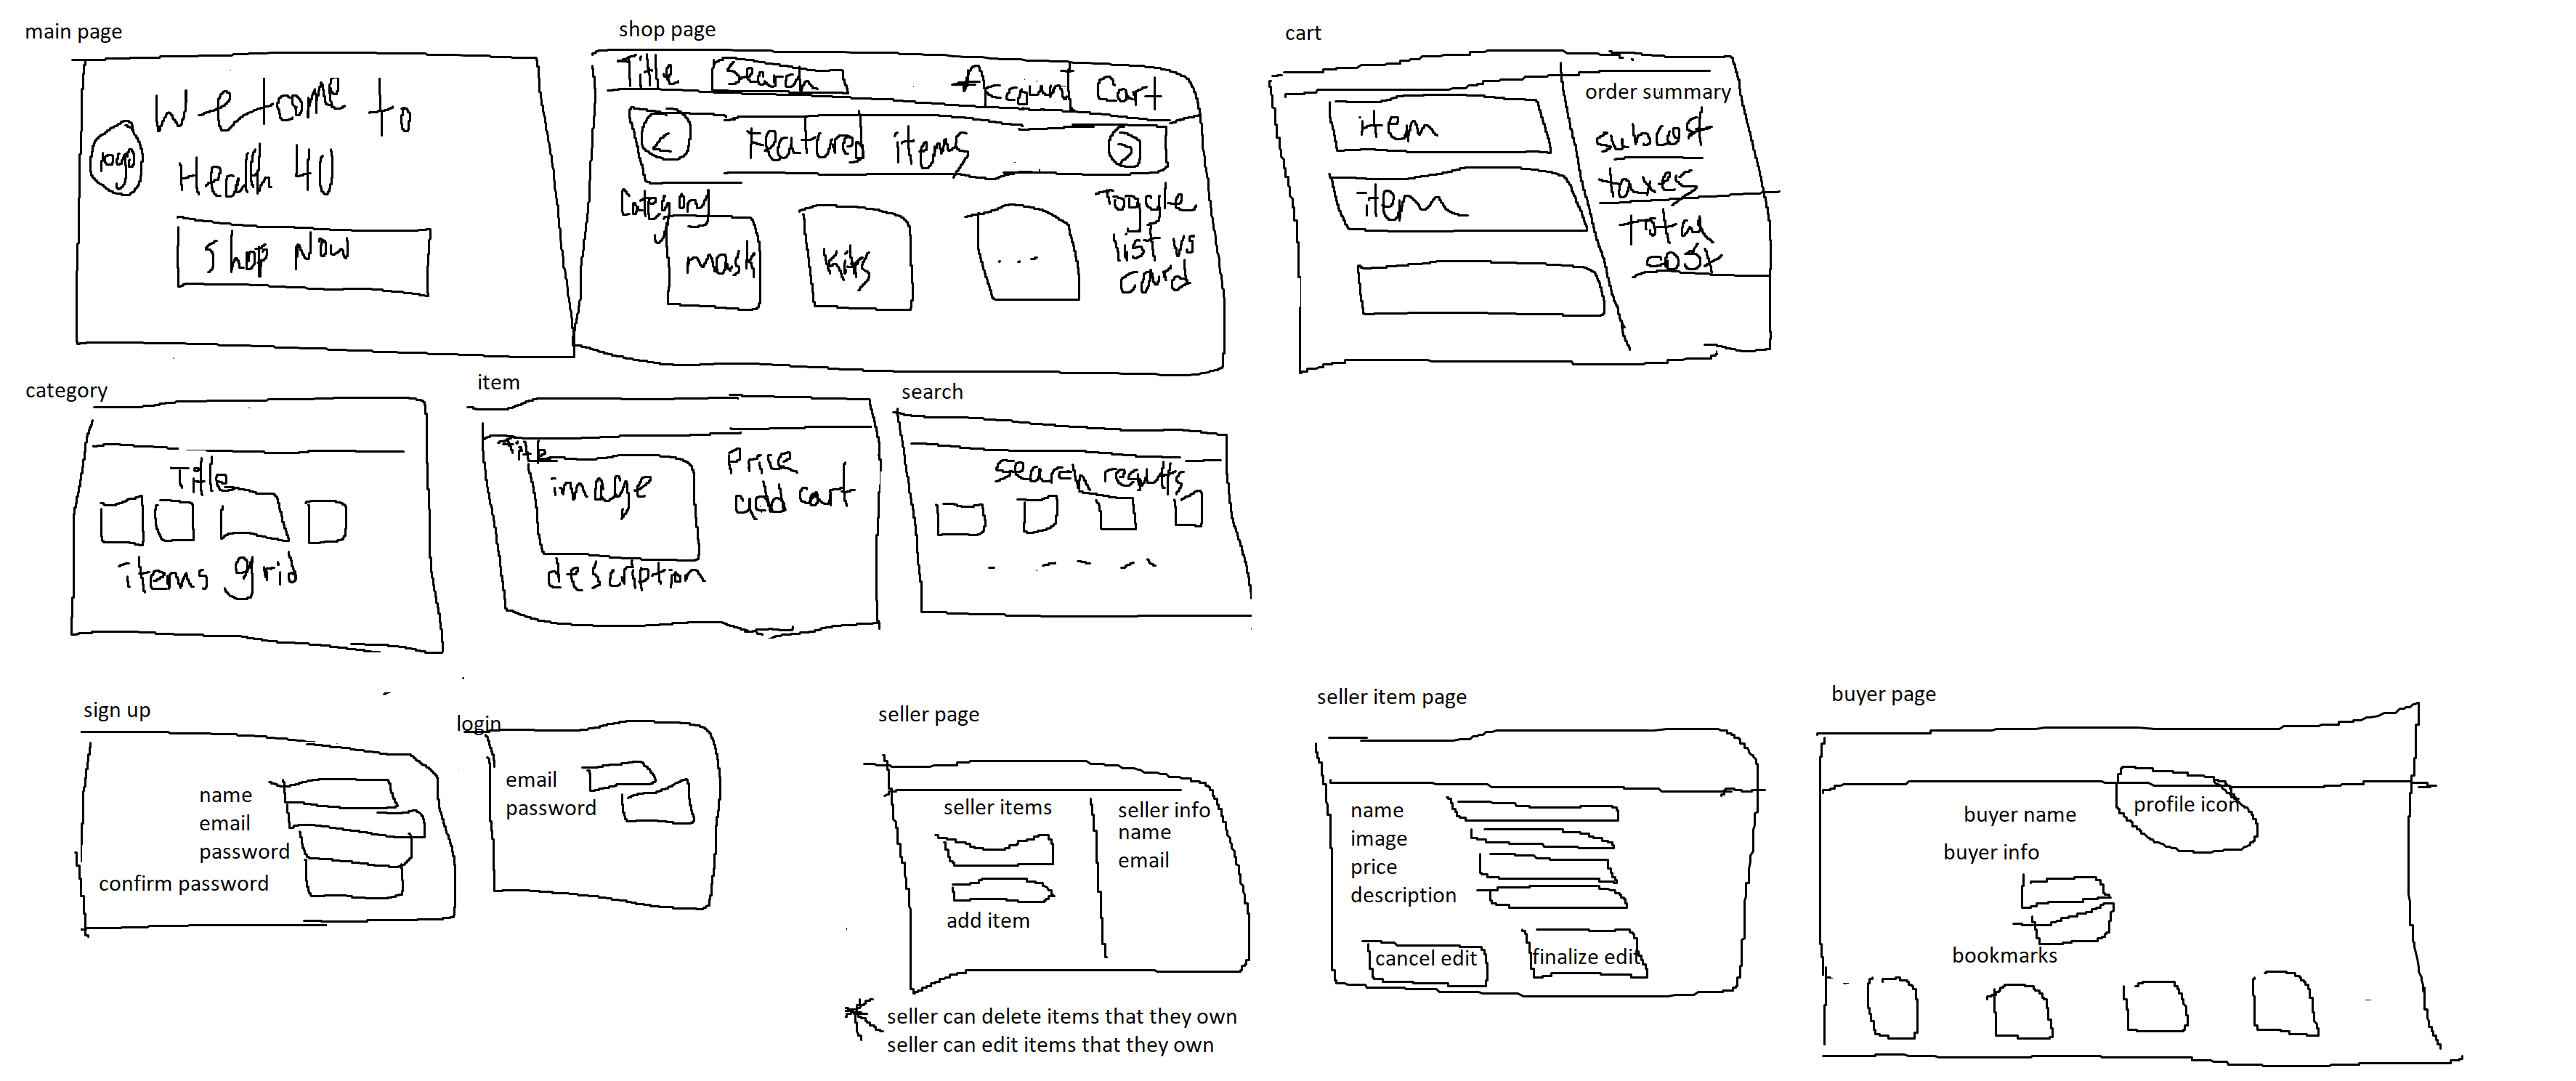 main page
Welcome to
logo
Health 4U
Shop Now
shop page
Title
Search
Account
Cart
<
Featured items
>
Category
mask
Kits
...
Toggle
list vs
card
cart
item
item
order summary
subcost
taxes
total
cost
category
Title
items grid
item
Title
image
Price
add cart
description
search
search results
sign up
name
email
password
confirm password
login
email
password
seller page
seller items
add item
seller info
name
email
seller can delete items that they own
seller can edit items that they own
seller item page
name
image
price
description
cancel edit
finalize edit
buyer page
profile icon
buyer name
buyer info
bookmarks